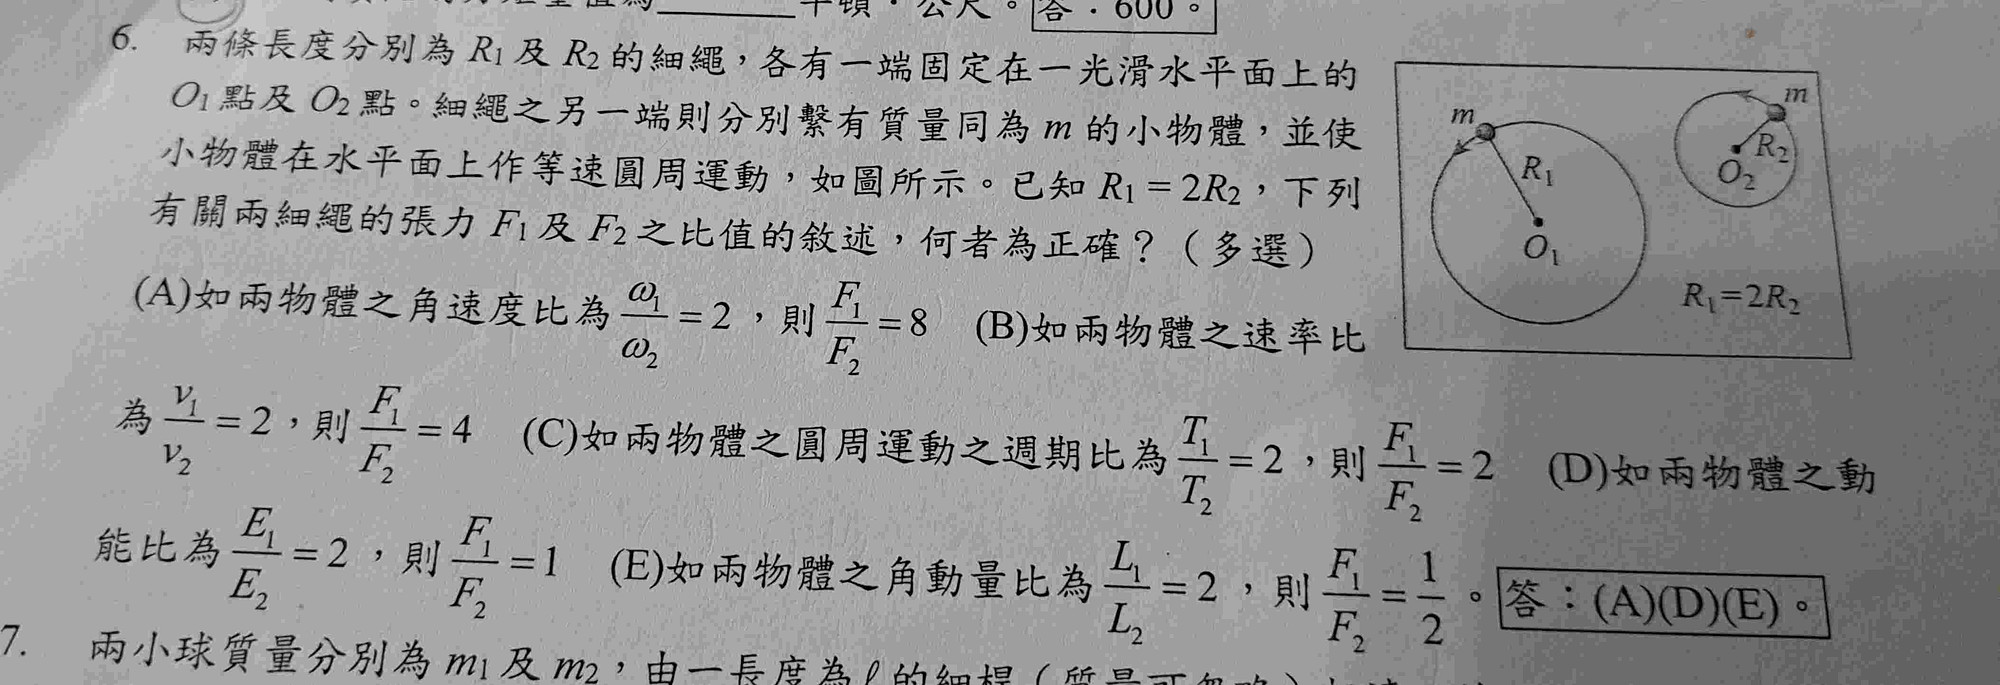 牛頓・公尺。答：600。
6. 兩條長度分別為 R1 及 R2 的細繩，各有一端固定在一光滑水平面上的
O1 點及 O2 點。細繩之另一端則分別繫有質量同為 m 的小物體，並使
小物體在水平面上作等速圓周運動，如圖所示。已知 R1 = 2R2，下列
有關兩細繩的張力 F1 及 F2 之比值的敘述，何者為正確？（多選）
m
R1
O1
m
R2
O2
R1=2R2
(A)如兩物體之角速度比為 ω1/ω2 = 2，則 F1/F2 = 8 (B)如兩物體之速率比
為 v1/v2 = 2，則 F1/F2 = 4 (C)如兩物體之圓周運動之週期比為 T1/T2 = 2，則 F1/F2 = 2 (D)如兩物體之動
能比為 E1/E2 = 2，則 F1/F2 = 1 (E)如兩物體之角動量比為 L1/L2 = 2，則 F1/F2 = 1/2。答：(A)(D)(E)。
7. 兩小球質量分別為 m1 及 m2，由一長度為 ℓ 的細桿（質量可忽略）